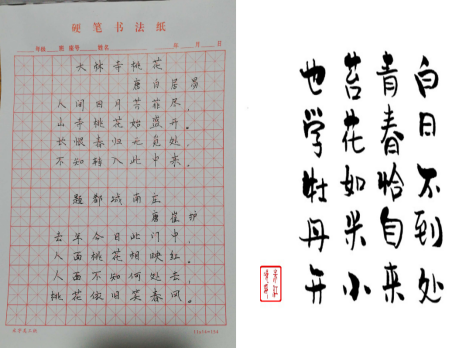 硬笔书法纸
年级 班 座号 姓名 年 月 日
大林寺桃花
唐 白居易
人间四月芳菲尽,
山寺桃花始盛开。
长恨春归无觅处,
不知转入此中来。
题都城南庄
唐 崔护
去年今日此门中,
人面桃花相映红。
人面不知何处去,
桃花依旧笑春风。
白日不到处
青春恰自来
苔花如米小
也学牡丹开